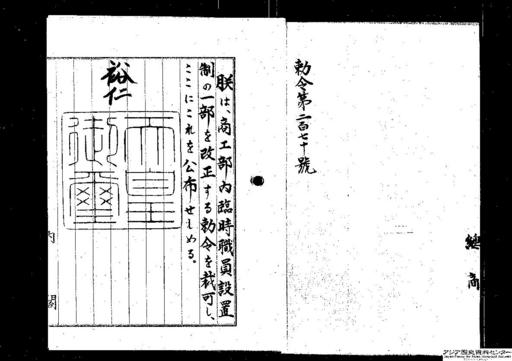 勅令第二百七十號
總
商
朕は、商工部内臨時職員設置
制の一部を改正する勅令を裁可し、
ここにこれを公布せしめる。
裕仁
天皇
御璽
内
閣
アジア歴史資料センター